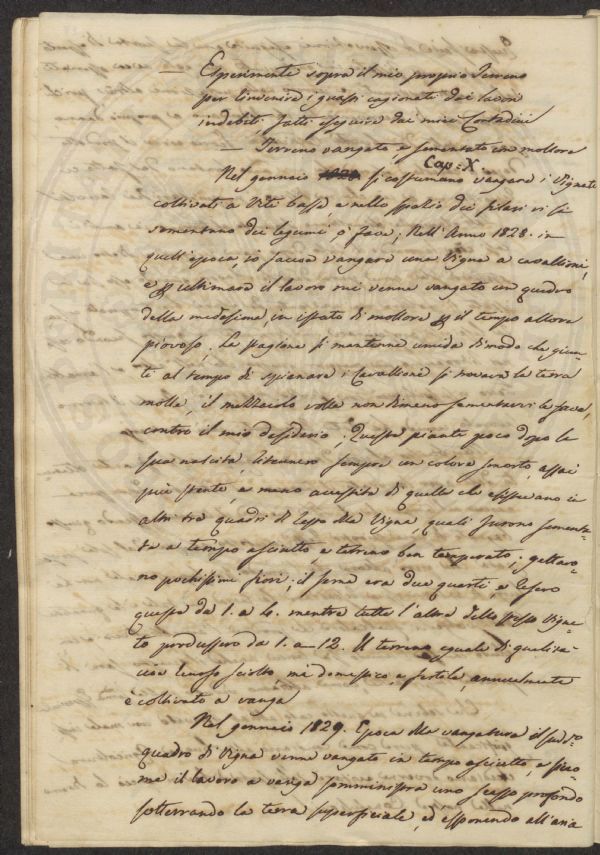 Esperimente sopra il mio proprio Terreno
per l'invenire i guasti cagionati dai lavori
indebiti, fatti eseguire dai miei Contadini
— Terreno vangato e sementato in mollore
Cap=X
Nel gennaio 1828 si costumano vangare i Vignati
coltivati a Vite bassa, e nello spazio dei filari vi si
sementano dei legumi, o fave; Nell'Anno 1828. in
quell'epoca, io faceva vangare una Vigna a cavallioni,
e p ultimare il lavoro mi venne vangato un quadro
della medesima, in istato di mollore p il tempo allora
piovoso, La stagione si mantenne umida di modo che giun-
ti al tempo di spianare i Cavallioni si trovava la terra
molle, il mezzaiolo volle non di meno sementarvi le fave,
contro il mio desiderio. Queste piante poco dopo la
sua nascita, ritennero sempre un colore smorto, assai
più stente, e meno accestite di quelle che esistevano in
altri tre quadri di essa Vigna, quali furono sementa-
te a tempo asciutto, e terreno ben temperato; gettaro-
no pochissimi fiori; il seme era due quarti, e resero
queste da 1. a 4. mentre tutte l'altre dello stesso Vigne-
to produssero da 1. a 12. Il terreno eguale di qualità
tenoso sciolto, ma domestico, e fertile, annualmente
è coltivato a vanga
Nel gennaio 1829. Epoca della vangatura il sud.to
quadro di Vigna venne vangato in tempo asciutto, e sicco-
me il lavoro a vanga somministra uno scasso profondo
sotterrando la terra superficiale, ed esponendo all'aria